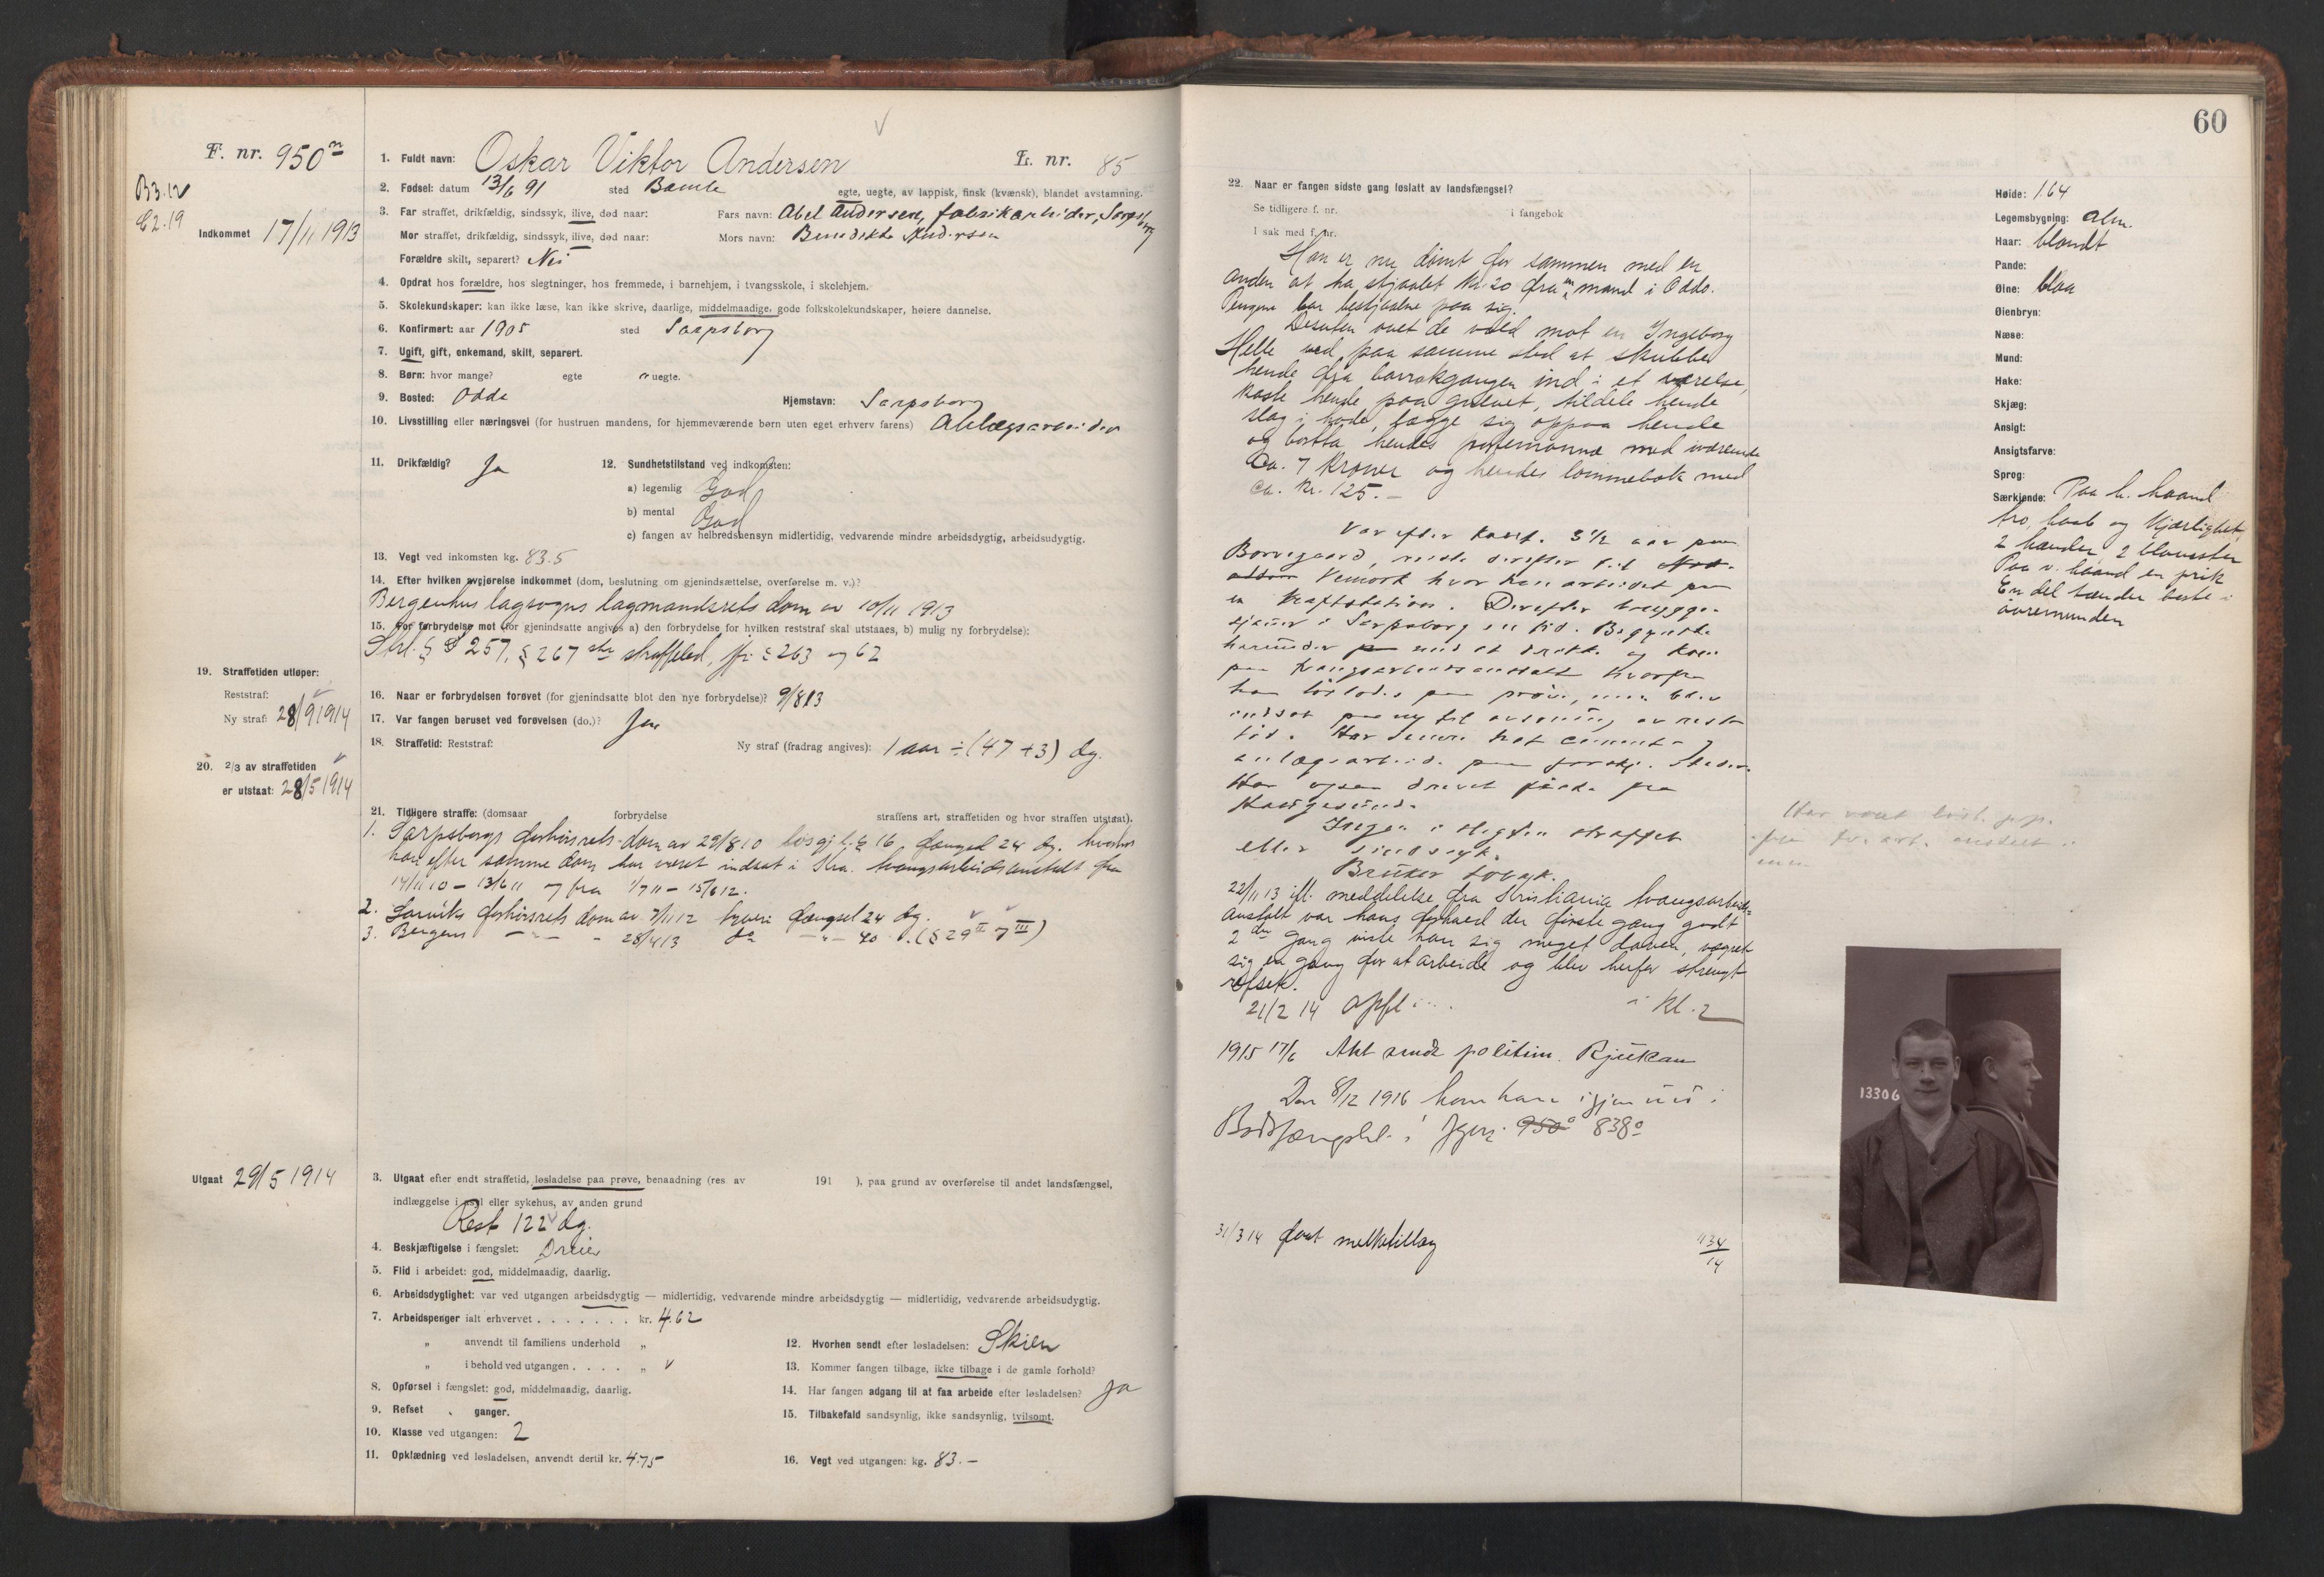 F. nr. 950
B3.12
C2.19
Indkommet 17/11 1913
1. Fuldt navn: Oskar Viktor Andersen L. nr. 85
2. Fødsel: datum 13/6 91 sted Bamle egte, uegte, av lappisk, finsk (kvænsk), blandet avstamning.
3. Far straffet, drikfældig, sindssyk, ilive, død naar: Fars navn: Abel Andersen, fabrikarbeider, Sarpsborg
Mor straffet, drikfældig, sindssyk, ilive, død naar: Mors navn: Benedikte Andersen
Forældre skilt, separert? Nei
4. Opdrat hos forældre, hos slegtninger, hos fremmede, i barnehjem, i tvangsskole, i skolehjem.
5. Skolekundskaper: kan ikke læse, kan ikke skrive, daarlige, middelmaadige, gode folkskolekundskaper, høiere dannelse.
6. Konfirmert: aar 1905 sted Sarpsborg
7. Ugift, gift, enkemand, skilt, separert.
8. Børn: hvor mange? egte uegte.
9. Bosted: Odda Hjemstavn: Sarpsborg
10. Livsstilling eller næringsvei (for hustruen mandens, for hjemmeværende børn uten eget erhverv farens) Anlægsarbeider
11. Drikfældig? Ja 12. Sundhetstilstand ved indkomsten:
a) legemlig God
b) mental God
c) fangen av helbredshensyn midlertidig, vedvarende mindre arbeidsdygtig, arbeidsudygtig.
13. Vegt ved inkomsten kg. 83.5
14. Efter hvilken avgjørelse indkommet (dom, beslutning om gjenindsættelse, overførelse m. v.)?
Bergenhus lagsogns lagmandsrets dom av 10/11 1913
15. For forbrydelse mot (for gjenindsatte angives a) den forbrydelse for hvilken reststraf skal utstaaes, b) mulig ny forbrydelse):
Strl. § 257, § 267 straffebud, jfr. § 263 og 62
19. Straffetiden utløper:
Reststraf:
Ny straf: 28/9 1914
16. Naar er forbrydelsen forøvet (for gjenindsatte blot den nye forbrydelse)? 9/8 13
17. Var fangen beruset ved forøvelsen (do.)? Ja
18. Straffetid: Reststraf: Ny straf (fradrag angives): 1 aar ÷ (47 + 3) dg.
20. 2/3 av straffetiden
er utstaat: 28/5 1914
21. Tidligere straffe: (domsaar forbrydelse straffens art, straffetiden og hvor straffen utstaat).
1. Sarpsborgs forhørsrets dom av 29/8 10 løsgj.l. § 16 fængsel 24 dg. hvorhos
han efter samme dom har været indsat i Kra. tvangsarbeidsanstalt fra
14/11 10 – 13/6 11 og fra 1/7 11 – 15/6 12.
2. Larviks forhørsrets dom av 7/11 12 tyveri fængsel 24 dg.
3. Bergens – " – 28/4 13 do – " – 40 " (§ 29 II 7 III)
Utgaat 29/5 1914
3. Utgaat efter endt straffetid, løsladelse paa prøve, benaadning (res. av 191 ), paa grund av overførelse til andet landsfængsel,
indlæggelse i asyl eller sykehus, av anden grund
Rest 122 dg.
4. Beskjæftigelse i fængslet: Dreier
5. Flid i arbeidet: god, middelmaadig, daarlig.
6. Arbeidsdyglighet: var ved utgangen arbeidsdygtig — midlertidig, vedvarende mindre arbeidsdygtig — midlertidig, vedvarende arbeidsudygtig.
7. Arbeidspenger ialt erhvervet . . . . . . . kr. 4.62
„ anvendt til familiens underhold „
„ i behold ved utgangen . . . . „
8. Opførsel i fængslet: god, middelmaadig, daarlig.
9. Refset ganger.
10. Klasse ved utgangen: 2
11. Opklædning ved løsladelsen, anvendt dertil kr. 4.75
12. Hvorhen sendt efter løsladelsen: Skien
13. Kommer fangen tilbage, ikke tilbage i de gamle forhold?
14. Har fangen adgang til at faa arbeide efter løsladelsen? Ja
15. Tilbakefald sandsynlig, ikke sandsynlig, tvilsomt.
16. Vegt ved utgangen: kg. 83.–
60
22. Naar er fangen sidste gang løslatt av landsfængsel?
Se tidligere f. nr. i fangebok
I sak med f. nr.
Han er nu dømt for sammen med en
anden at ha stjaalet kr. 20 fra en mand i Odda.
Pengene bar bestjaalne paa sig.
Desuten øvet de vold mot en Ingeborg
Helle ved paa samme sted at skubbe
hende fra barrakgangen ind i et værelse,
kaste hende paa gulvet, tildele hende
slag i hode, lægge sig oppaa hende
og bortta hendes portemonnæ med værende
Ca. 7 kroner og hendes lommebok med
ca. kr. 125.–
Var efter konf. 3 1/2 aar paa
Borregaard, reiste derefter til
Vemork hvor han arbeidet paa
en kraftstation. Derefter brygge-
sjauer i Sarpsborg en tid. Begyndte
herunder med at drikke og kom
paa tvangsarbeidsanstalt hvorfra
han løslodes paa prøve, men blev
indsat paa ny til avsoning av rest-
tid. Har senere hat cement- og
anlægsarbeide paa forskj. steder.
Har ogsaa drevet fiske fra
Haugesund.
Ingen i slegten straffet
eller sindssyk.
Bruker tobak.
22/11 13 ifl. meddelelse fra Kristiania tvangsarbeids-
anstalt var hans forhold der første gang godt
2den gang viste han sig meget doven, vægret
sig en gang for at arbeide og blev herfor strengt
refset.
21/2 14 opfl. i Kl. 2
1915 17/6 Akt sendt politim. Rjukan
Den 8/12 1916 kom han igjen ind i
Botsfængslet i Fgnr. 950 838
31/3 14 faat melketillæg
Har været løsl. p.p.
fra tv. arb. anstalt
Høide: 1.64
Legemsbygning: alm.
Haar: blondt
Pande:
Øine: blaa
Øienbryn:
Næse:
Mund:
Hake:
Skjæg:
Ansigt:
Ansigtsfarve:
Sprog:
Særkjende: Paa h. haand
tro, haab og kjærlighet,
2 hænder, 2 blomster
Paa v. haand en prik
En del tænder borte i
overmunden
13306